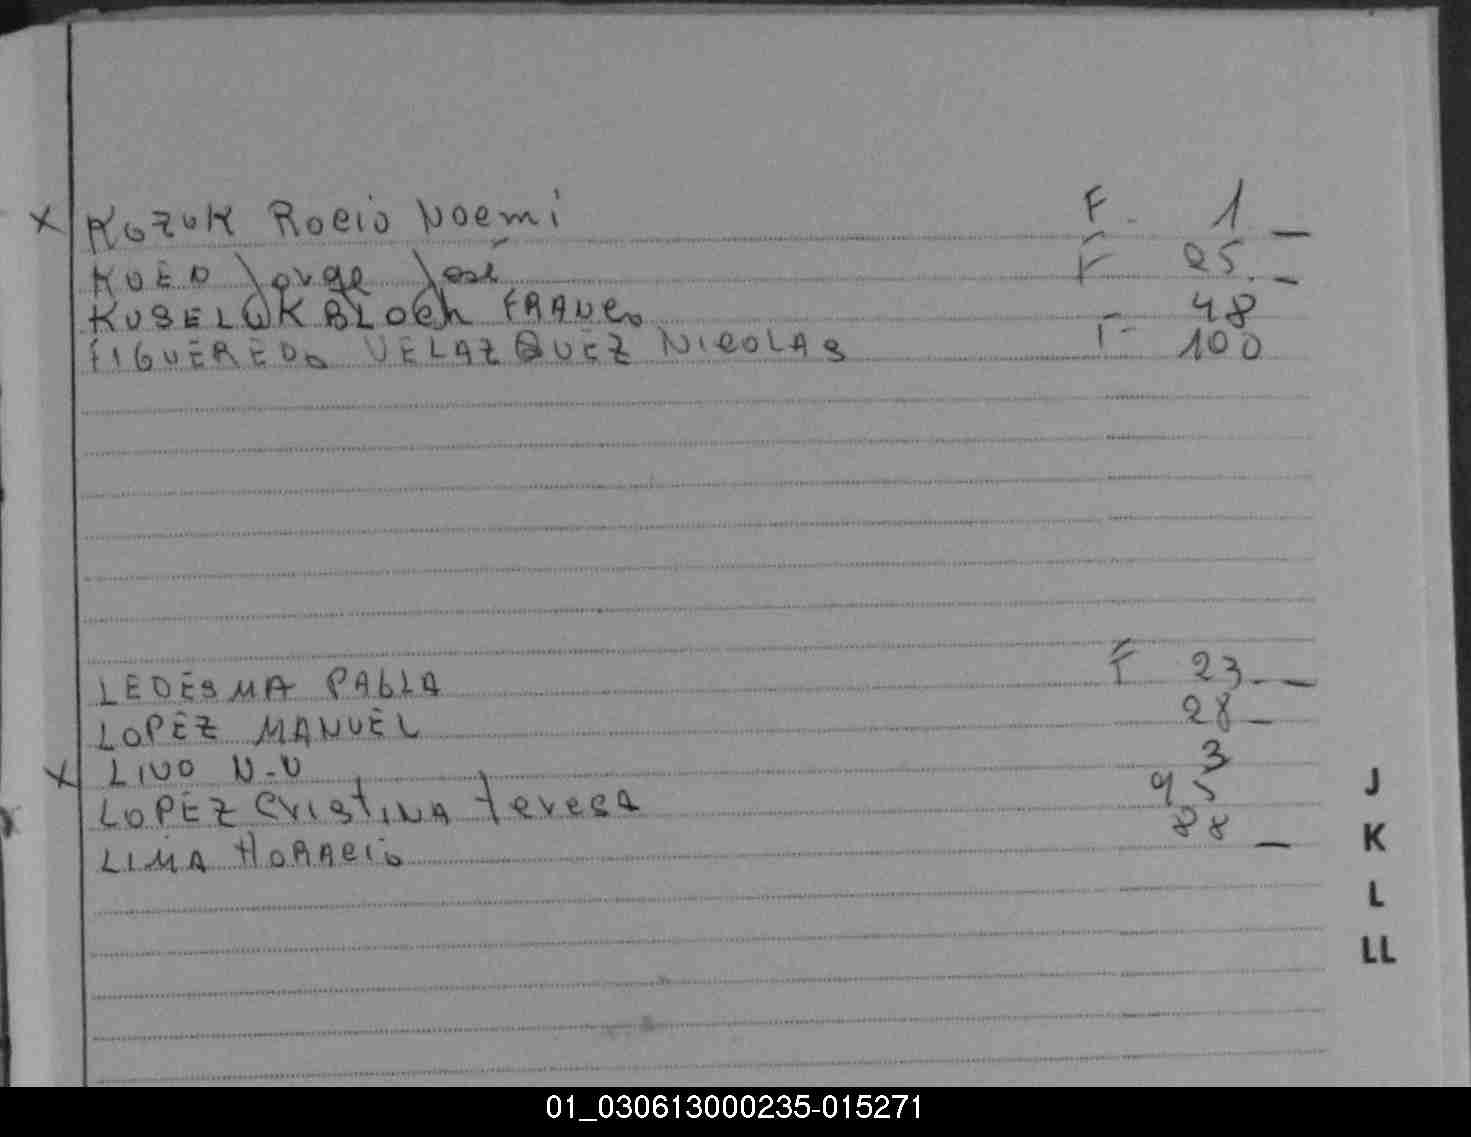 x Kozuk Rocio Noemi F. 1 _
KUED Jorge José F 25. _
KUSELUK BLOCH FRANCO 48
FIGUEREDO VELAZQUEZ NICOLAS F 100
LEDESMA PABLA F 23 _
LOPEZ MANUEL 28 _
x LIVO N-N 3
LOPEZ CRISTINA teresa 95
LIMA HORACIO 88 _
J
K
L
LL
01_030613000235-015271